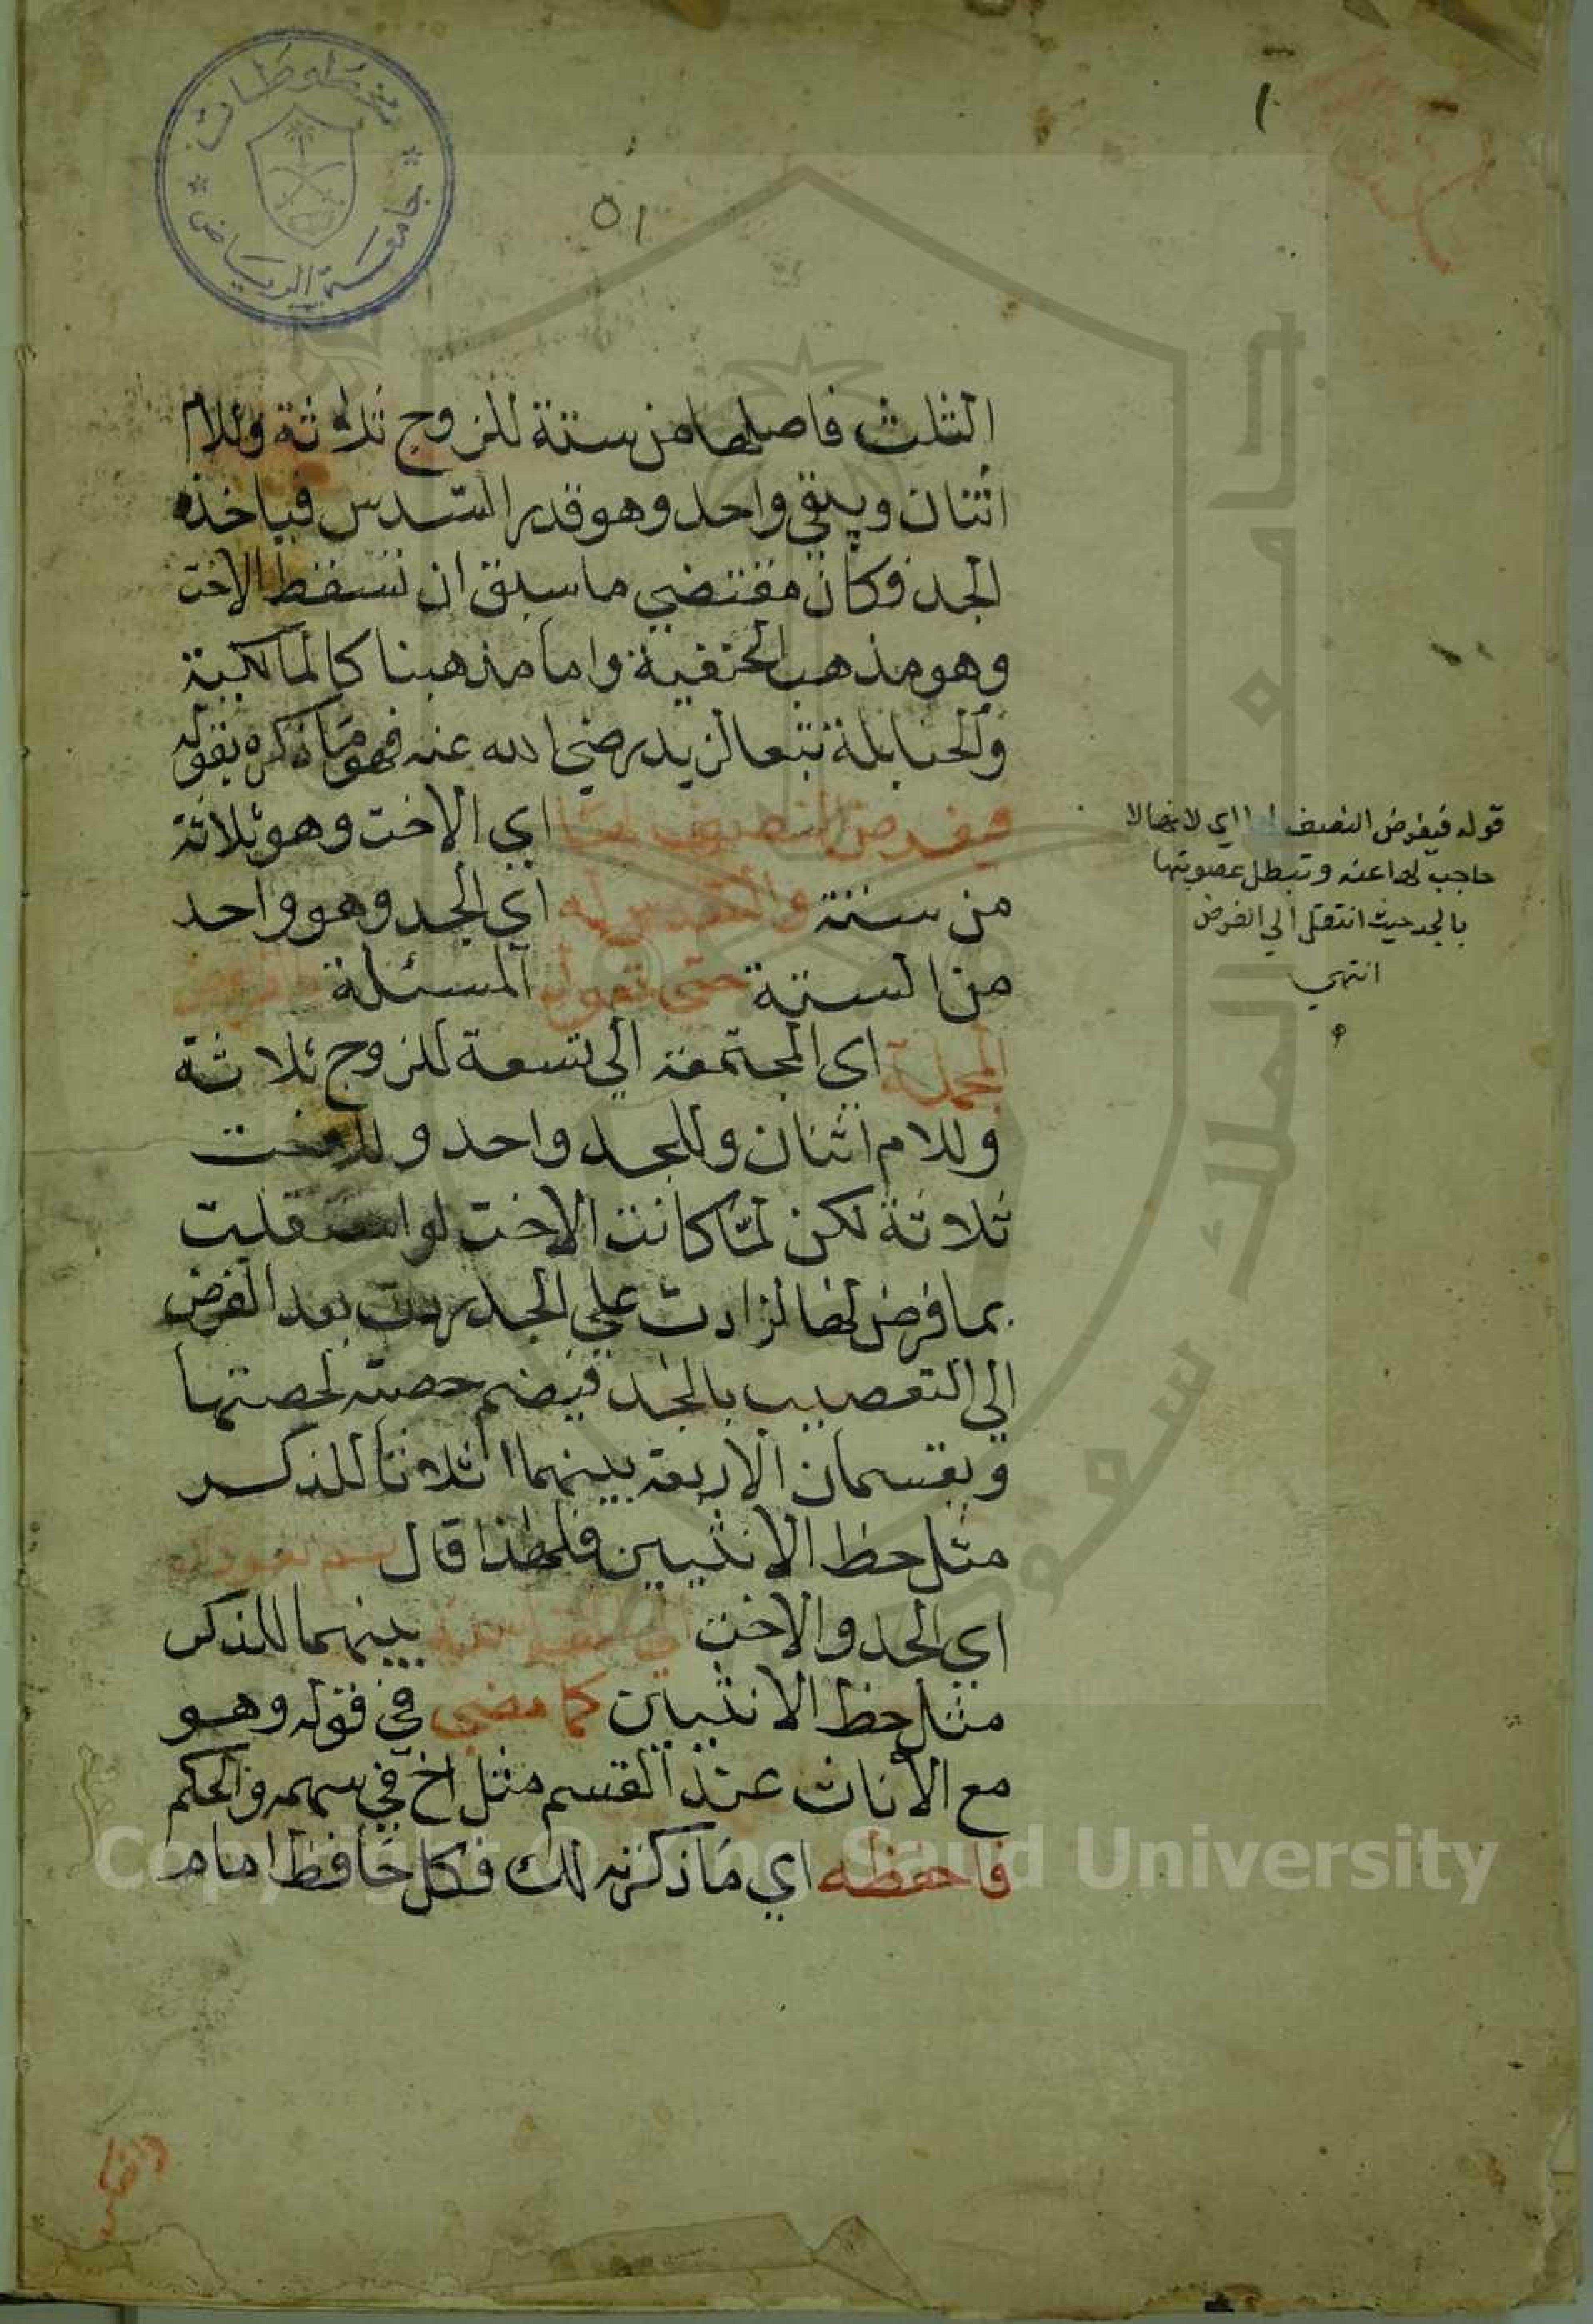 مخطوطات
جامعة الرياض
١
٥١
الثلث فاصلها من ستة للزوج ثلاثة وللام
اثنان ويبقي واحد وهو قدر السدس فياخذه
الجد وكان مقتضي ما سبق ان تسقط الاخت
وهو مذهب الحنفية واما مذهبنا كالمالكية
والحنابلة تبعا لزيد رضي الله عنه فهو ما ذكره بقوله
فيفرض النصف لها اي الاخت وهو ثلاثة
من ستة والسدس له اي الجد وهو واحد
من الستة حتي تعول المسئلة بالفروض
المجملة اي المجتمعة الي تسعة للزوج ثلاثة
وللام اثنان وللجد واحد وللاخت
ثلاثة لكن لما كانت الاخت لو استقلت
بما فرض لها لزادت علي الجد ردت بعد الفرض
الي التعصيب بالجد فيضم حصته لحصتها
ويقسمان الاربعة بينهما اثلاثا للذكر
مثل حظ الانثيين فلهذا قال ثم يعودان
اي الجد والاخت الي المقاسمة بينهما للذكر
مثل حظ الانثيين كما مضي في قوله وهو
مع الاناث عند القسم مثل اخ في سهمه والحكم
فاحفظه اي ما ذكرته لك فكل حافظ امام
قوله فيفرض النصف لها اي لانها لا
حاجب لها عنه وتبطل عصوبتها
بالجد حيث انتقل الي الفرض
انتهي
جامعة الملك سعود
Copyright © King Saud University